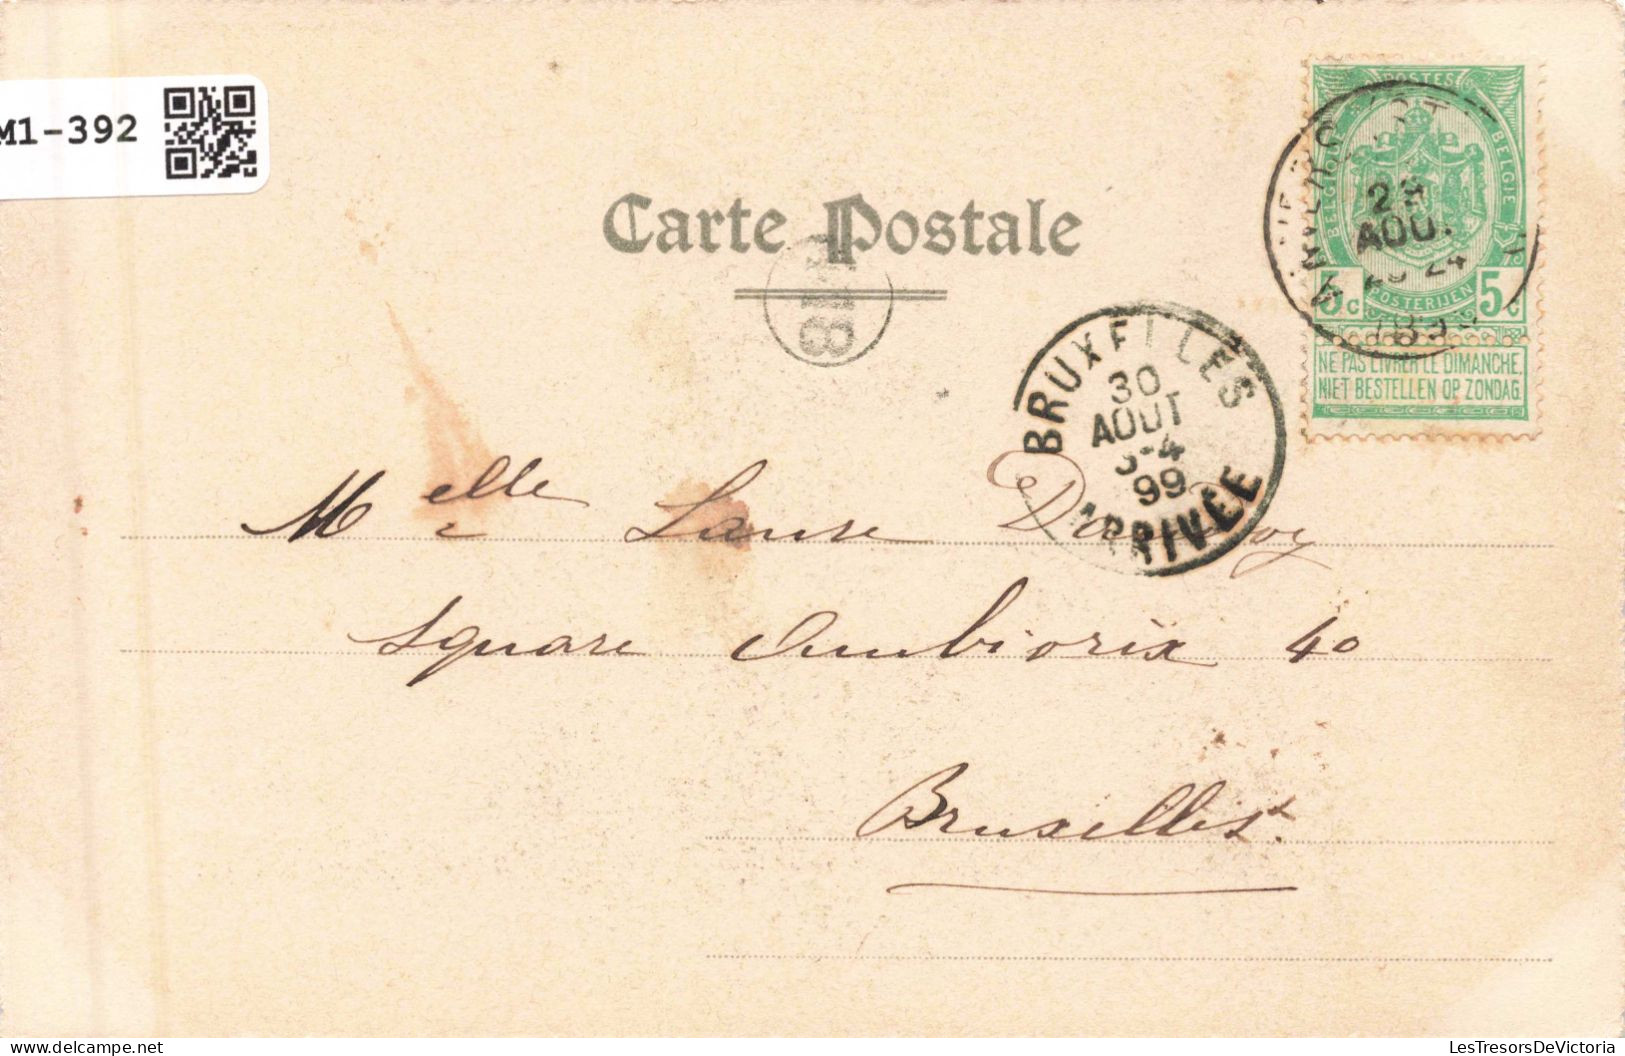 M1-392
Carte Postale
POSTES
BELGIQUE
BELGIE
5c 5c
POSTERIJEN
NE PAS LIVRER LE DIMANCHE.
NIET BESTELLEN OP ZONDAG.
ANVERS
AOU.
BRUXELLES
30
AOUT
99
ARRIVÉE
Melle Laure
square Ambiorix 40
Bruxelles.
LesTresorsDeVictoria